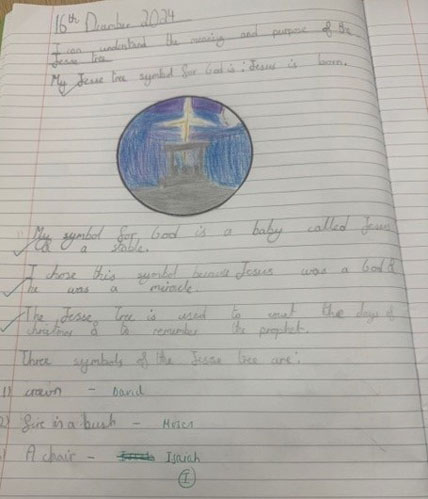 16th December 2024
I can understand the meaning and purpose of the
Jesse tree
My Jesse tree symbol for God is : Jesus is born.
My symbol for God is a baby called Jesus
& a stable.
I chose this symbol because Jesus was a God &
he was a miracle.
The Jesse Tree is used to count the days of
christmas & to remember the prophet.
Three symbols of the Jesse tree are:
1) crown - David
2) fire in a bush - Moses
A chair - Isaiah
I